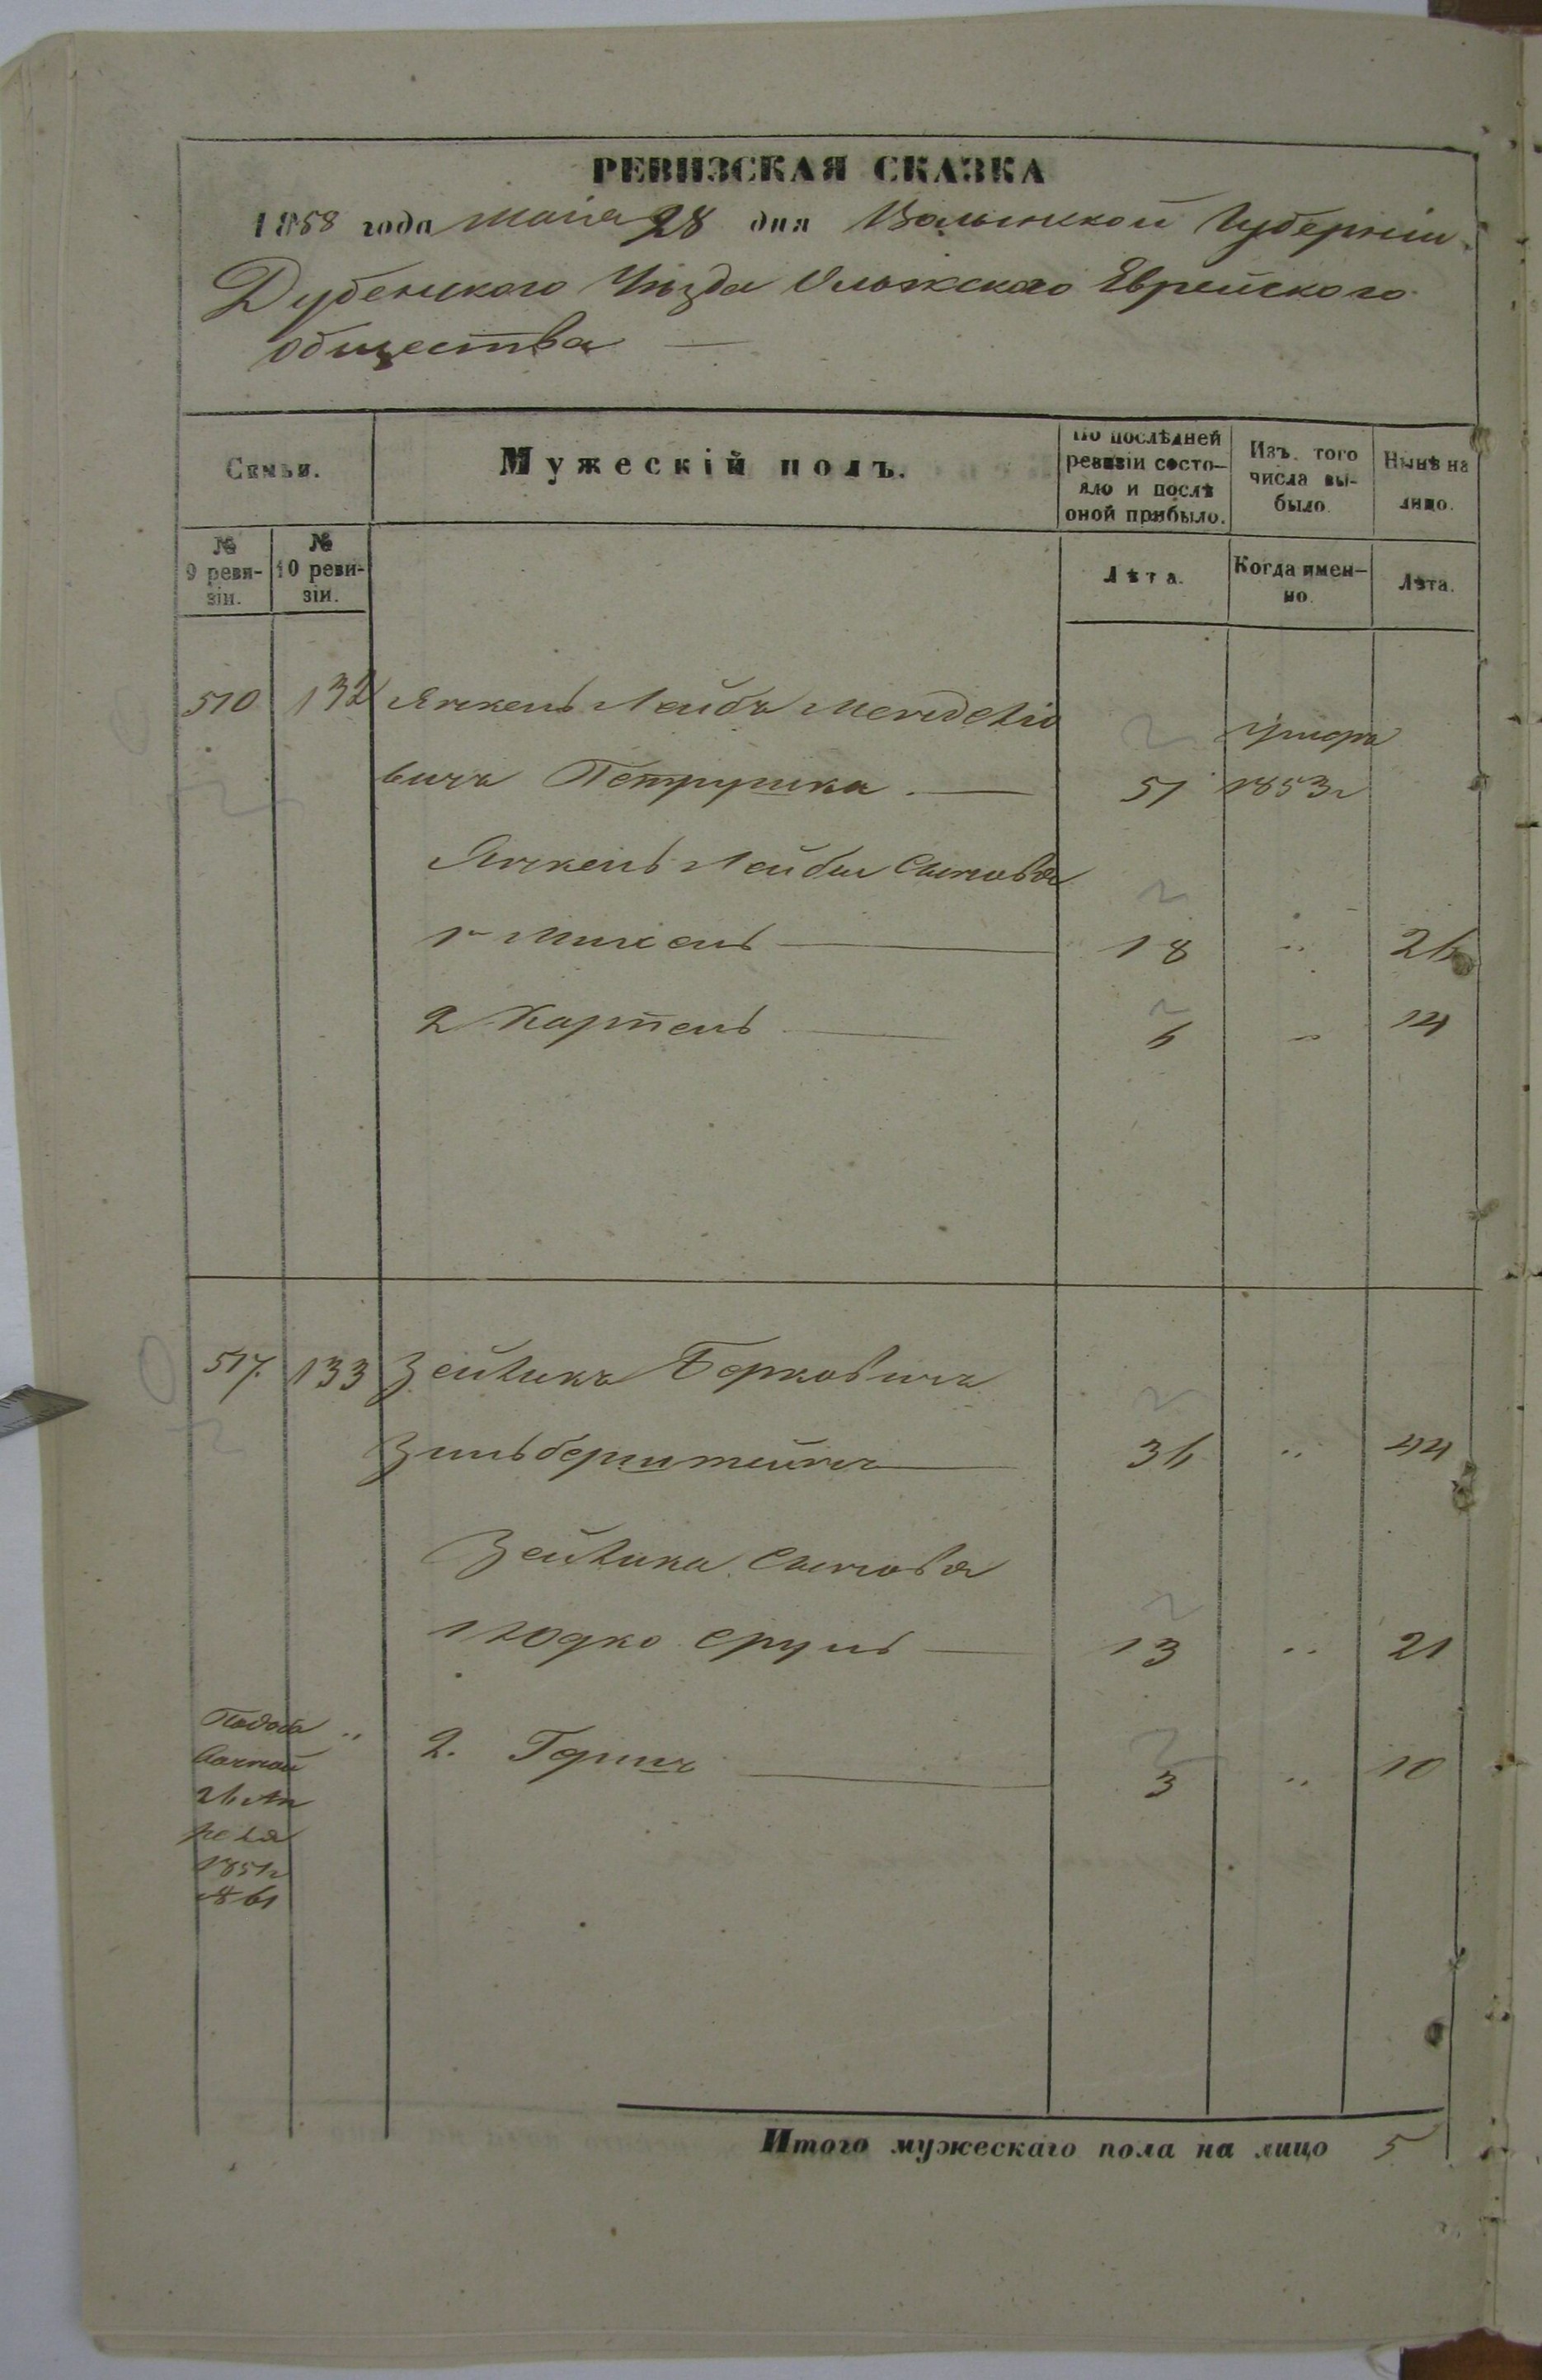 РЕВИЗСКАЯ СКАЗКА
1858 года Маія 28 дня Волынской Губерніи
Дубенского Уѣзда Олыкского Еврейского
общества —
Семьи.
Мужескій полъ.
По послѣдней
ревизіи состо-
яло и послѣ
оной прибыло.
Изъ того
числа вы-
было.
Нынѣ на
лицо.
№
9 реви-
зіи.
№
10 реви-
зіи.
Лѣта.
Когда имен-
но.
Лѣта.
510 132 Янкель Лейбъ Мендели умеръ
вичъ Петрушка — 51 1853г
Янкель Лейбы Сыновья
1й Михель — 18 " 26
2 Карпель — 6 " 14
517. 133 Зейликъ Берковичъ
Зильберштейнъ — 36 " 44
Зейлика Сыновья
1 Юдко Сруль — 13 " 21
2. Гершъ — 3 " 10
26 Ап
реля
1851г
№ 61
Итого мужескаго пола на лицо 5